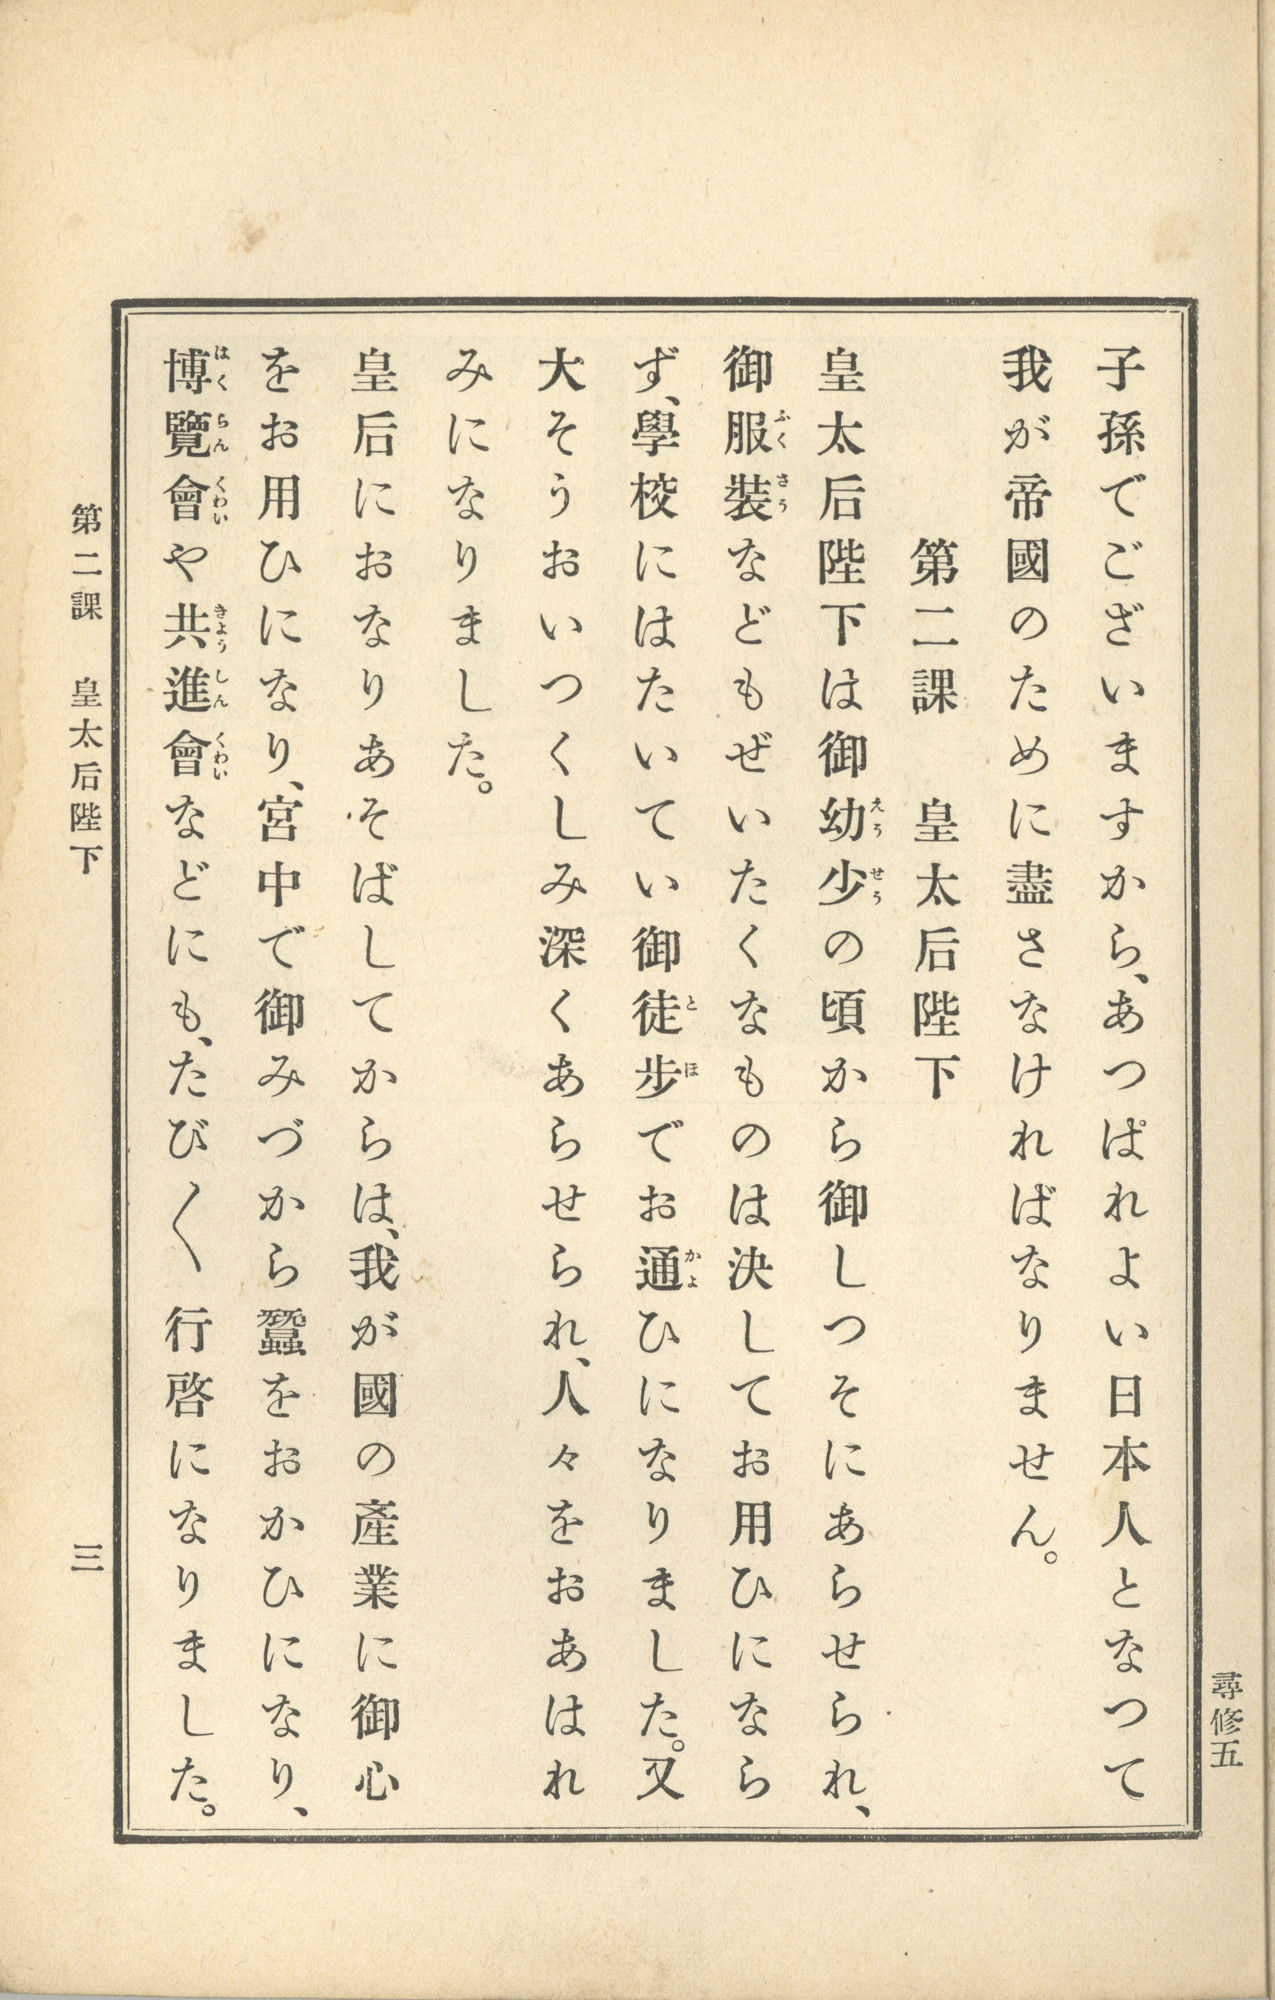 尋修五
子孫でございますから、あつぱれよい日本人となつて
我が帝國のために盡さなければなりません。
第二課　皇太后陛下
皇太后陛下は御幼少の頃から御しつそにあらせられ、
御服裝などもぜいたくなものは決してお用ひになら
ず、學校にはたいてい御徒歩でお通ひになりました。又
大そうおいつくしみ深くあらせられ、人々をおあはれ
みになりました。
皇后におなりあそばしてからは、我が國の產業に御心
をお用ひになり、宮中で御みづから蠶をおかひになり、
博覽會や共進會などにも、たび〳〵行啓になりました。
第二課　皇太后陛下　三